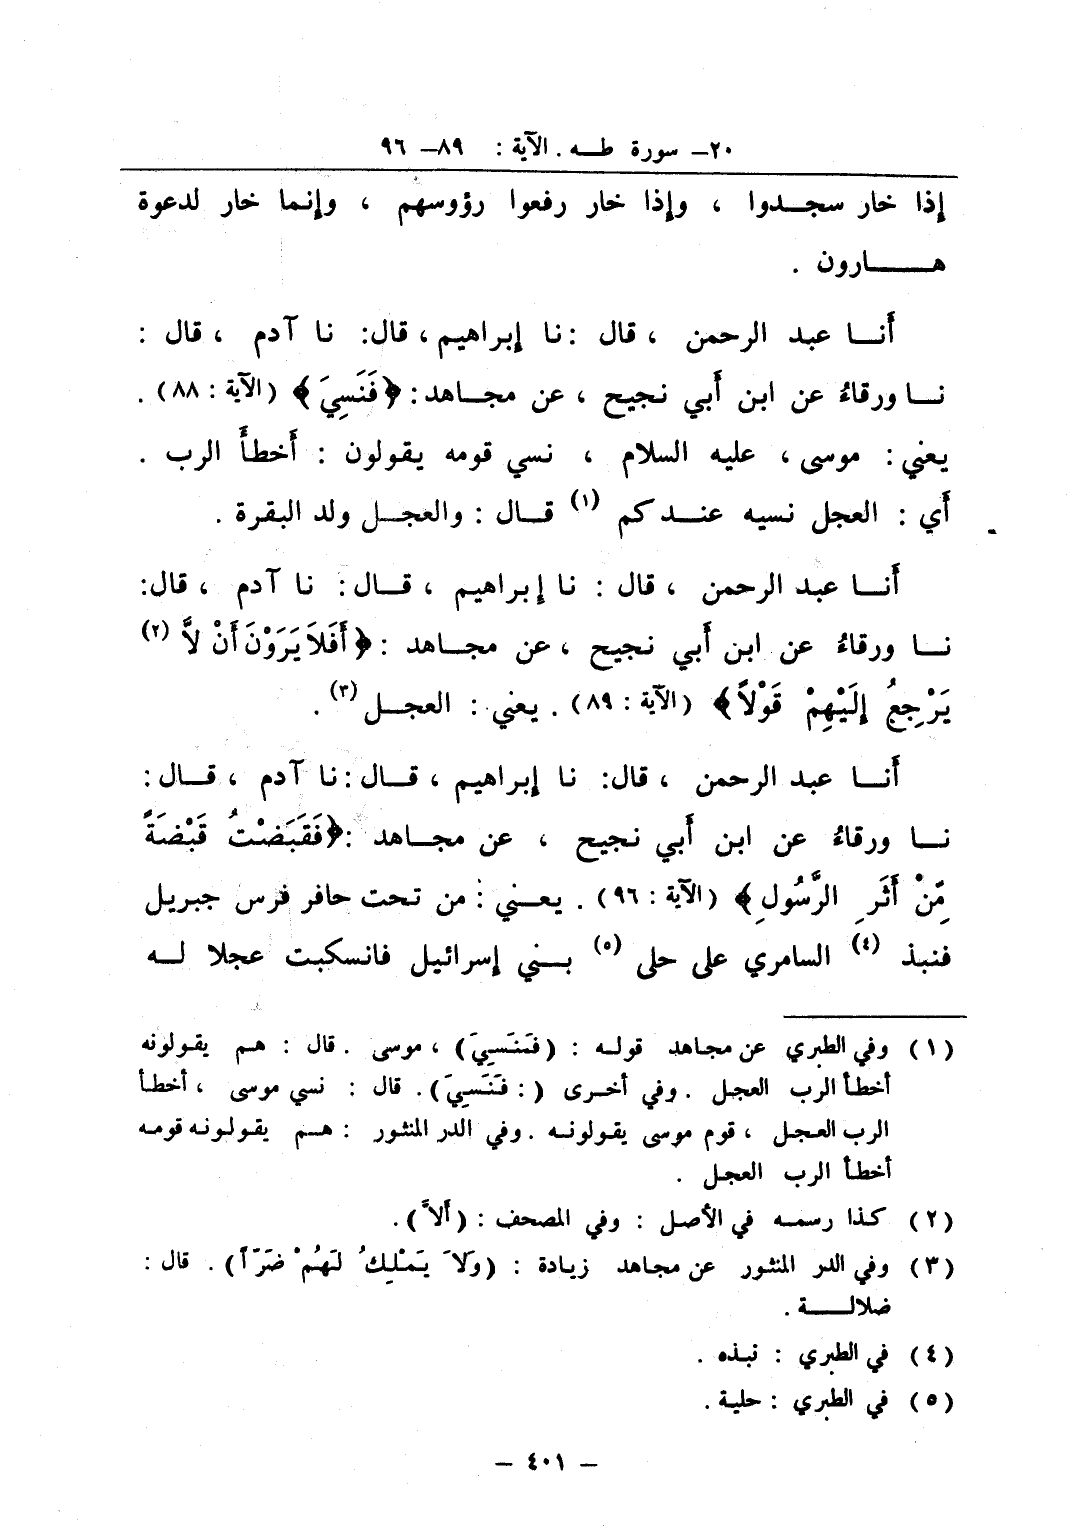 ٢٠ــ سورة طــه . الآية : ٨٩ــ ٩٦
إذا خار سجــدوا ، وإذا خار رفعوا رؤوسهم ، وإنما خار لدعوة
هــــارون .
أنــا عبد الرحمن ، قال : نا إبراهيم ، قال : نا آدم ، قال :
نــا ورقاءُ عن ابن أبي نجيح ، عن مجــاهد : ﴿فَنَسِيَ﴾ (الآية : ٨٨) .
يعني : موسى ، عليه السلام ، نسي قومه يقولون : أخطأ الرب .
أي : العجل نسيه عنــدكم (١) قــال : والعجــل ولد البقرة .
أنــا عبد الرحمن ، قال : نا إبراهيم ، قــال : نا آدم ، قال :
نــا ورقاءُ عن ابن أبي نجيح ، عن مجــاهد : ﴿أَفَلاَ يَرَوْنَ أَنْ لاَّ (٢)
يَرْجِعُ إِلَيْهِمْ قَوْلاً﴾ (الآية : ٨٩) . يعني : العجــل (٣) .
أنــا عبد الرحمن ، قال : نا إبراهيم ، قــال : نا آدم ، قــال :
نــا ورقاءُ عن ابن أبي نجيح ، عن مجــاهد : ﴿فَقَبَضْتُ قَبْضَةً
مِّنْ أَثَرِ الرَّسُولِ﴾ (الآية : ٩٦) . يعــني : من تحت حافر فرس جبريل
فنبذ (٤) السامري على حلى (٥) بــني إسرائيل فانسكبت عجلا لــه
(١) وفي الطبري عن مجاهد قولــه : (فَنَسِيَ) ، موسى . قال : هـم يقولونه
أخطأ الرب العجل . وفي أخــرى ( : فَنَسِيَ) . قال : نسي موسى ، أخطأ
الرب العجل ، قوم موسى يقولونــه . وفي الدر المنثور : هــم يقولونه قومه
أخطأ الرب العجل .
(٢) كذا رسمــه في الأصل : وفي المصحف : (أَلاَّ) .
(٣) وفي الدر المنثور عن مجاهد زيادة : (وَلاَ يَمْلِكُ لَهُمْ ضَرّاً) . قال :
ضلالــــة .
(٤) في الطبري : نبذه .
(٥) في الطبري : حلية .
— ٤٠١ —